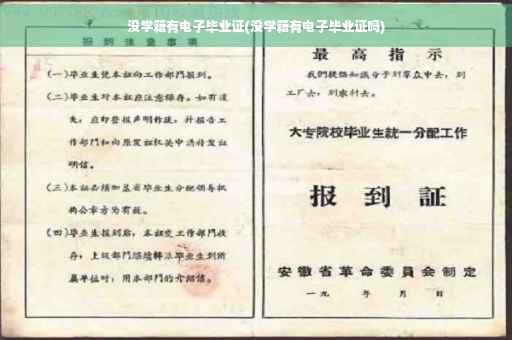 没学籍有电子毕业证(没学籍有电子毕业证吗)
报到注意事项
(一)毕业生凭本证向工作部门报到。
(二)毕业生对本证应注意保存。如有遗
失，应即登报声明作废，并报告工
作部门和向原发证机关申请补发证
明信。
(三)本证必须加盖省毕业生分配领导机
构公章方为有效。
(四)毕业生报到后，本证交工作部门收
存；上级部门
毕业生到所
属单位时，用本部门的介绍信。
最高指示
我们提倡知识分子到群众中去，到
工厂去，到农村去。
大专院校毕业生統一分配工作
报到証
安徽省革命委員会制定
一九 年 月 日